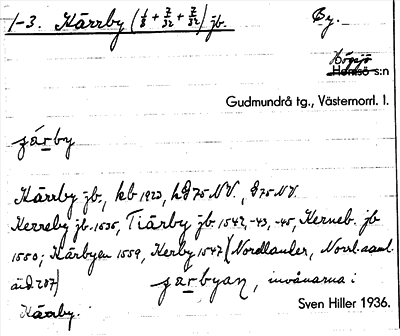 1-3. Kärrby (1/8 + 7/32 + 7/32) jb. By.
Högsjö
Hemsö s:n
Gudmundrå tg., Västernorrl. l.
järby
Kärrby jb., kb 1923, hG 75 NV., G 75 NV.
Kerreby jb. 1535, Tiärby jb 1542, -43, -45, Kerneb. jb
1550, Kärbyen 1559, Kerby 1547 (Nordlander, Norrl. saml.
järbyan, invånarna i
Kärrby.
Sven Hiller 1936.